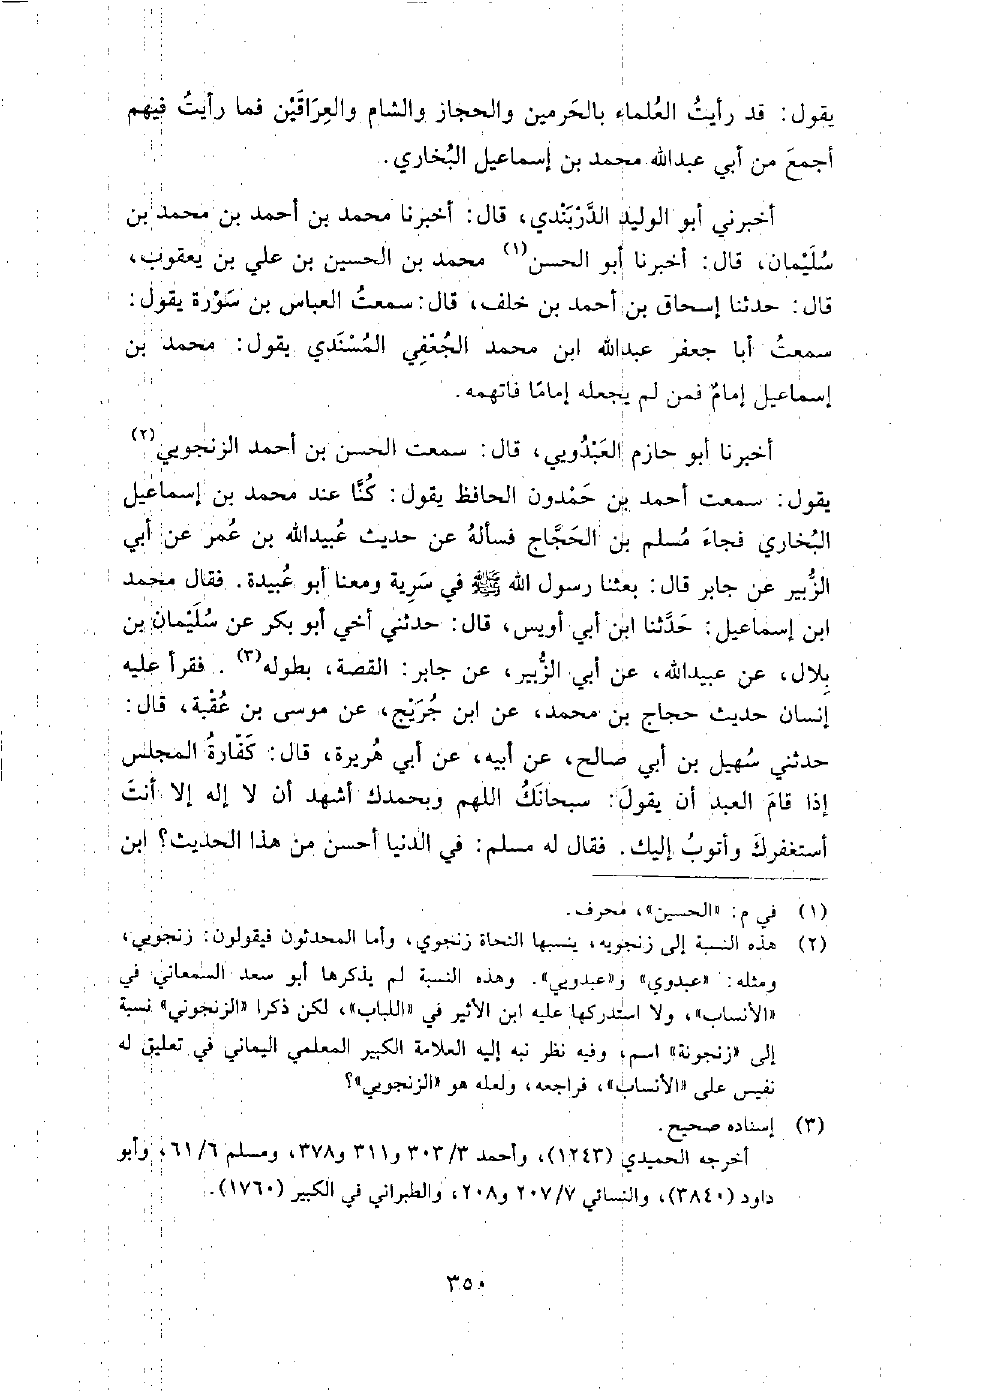 يقول: قد رأيتُ العُلماء بالحَرمين والحجاز والشام والعِرَاقَيْن فما رأيتُ فيهم
أجمعَ من أبي عبدالله محمد بن إسماعيل البُخاري.
أخبرني أبو الوليد الدَّرْبَنْدي، قال: أخبرنا محمد بن أحمد بن محمد بن
سُلَيْمان، قال: أخبرنا أبو الحسن(١) محمد بن الحسين بن علي بن يعقوب،
قال: حدثنا إسحاق بن أحمد بن خلف، قال: سمعتُ العباس بن سَوْرة يقول:
سمعتُ أبا جعفر عبدالله ابن محمد الجُعْفي المُسْنَدي يقول: محمد بن
إسماعيل إمامٌ فمن لم يجعله إمامًا فاتهمه.
أخبرنا أبو حازم العَبْدُويي، قال: سمعت الحسن بن أحمد الزنجويي(٢)
يقول: سمعت أحمد بن حَمْدون الحافظ يقول: كُنَّا عند محمد بن إسماعيل
البُخاري فجاءَ مُسلم بن الحَجَّاج فسألهُ عن حديث عُبيدالله بن عُمر عن أبي
الزُّبير عن جابر قال: بعثنا رسول الله ﷺ في سَرِية ومعنا أبو عُبيدة. فقال محمد
ابن إسماعيل: حَدَّثنا ابن أبي أويس، قال: حدثني أخي أبو بكر عن سُلَيْمان بن
بِلال، عن عبيدالله، عن أبي الزُّبير، عن جابر: القصة، بطوله(٣). فقرأ عليه
إنسان حديث حجاج بن محمد، عن ابن جُرَيْج، عن موسى بن عُقْبة، قال:
حدثني سُهيل بن أبي صالح، عن أبيه، عن أبي هُريرة، قال: كَفّارةُ المجلس
إذا قامَ العبد أن يقولَ: سبحانَكَ اللهم وبحمدك أشهد أن لا إله إلا أنتَ
أستغفركَ وأتوبُ إليك. فقال له مسلم: في الدنيا أحسن من هذا الحديث؟ ابن
(١) في م: «الحسين»، محرف.
(٢) هذه النسبة إلى زنجويه، ينسبها النحاة زنجوي، وأما المحدثون فيقولون: زنجويي،
ومثله: «عبدوي» و«عبدويي». وهذه النسبة لم يذكرها أبو سعد السمعاني في
«الأنساب»، ولا استدركها عليه ابن الأثير في «اللباب»، لكن ذكرا «الزنجوني» نسبة
إلى «زنجونة» اسم، وفيه نظر نبه إليه العلامة الكبير المعلمي اليماني في تعليق له
نفيس على «الأنساب»، فراجعه، ولعله هو «الزنجويي»؟
(٣) إسناده صحيح.
أخرجه الحميدي (١٢٤٣)، وأحمد ٣/ ٣٠٣ و٣١١ و٣٧٨، ومسلم ٦/ ٦١، وأبو
داود (٣٨٤٠)، والنسائي ٧/ ٢٠٧ و٢٠٨، والطبراني في الكبير (١٧٦٠).
٣٥٠